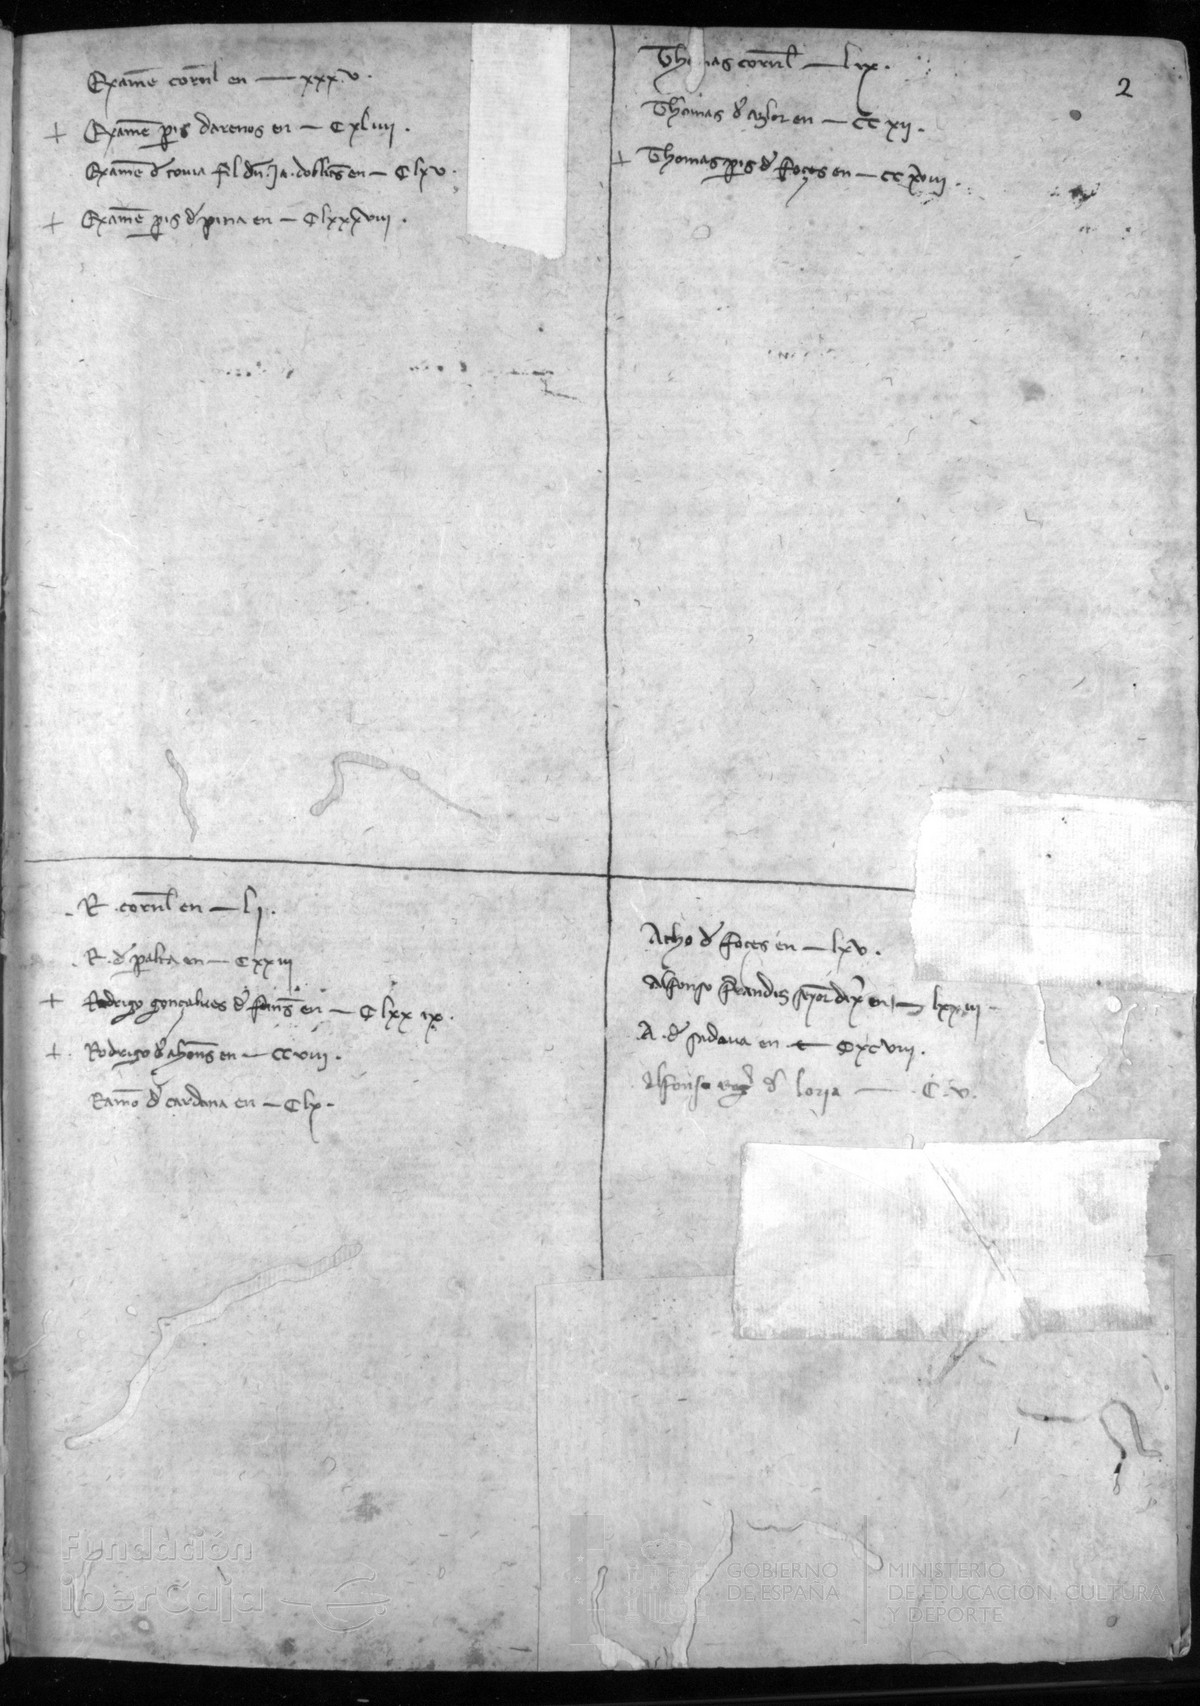 2
Examen̄ corn̄l en — xxxv.
+ Examen̄ p̱is darenos en — Cxliiii.
Examen̄ d' touia fil en — Clxv.
+ Examen̄ p̱is d' pina en — Clxxxviii.
Thomas corn̄l — lix.
Thomas d' en — CCxii.
+ Thomas p̱is d' foçes en — CCxviii.
R. corn̄l en — li.
R. d' p̱alta en — Cxxiii
+ Rodrigo gonçalues d' en — Clxxix.
+ Rodrigo d' en — CCviii.
Ramō d' cardona en — Clx.
Atho d' foces en — lxv.
Alfonso en — lxxiii
A. d' sadaua en — Cxcviii.
Alfonso d' loria — C.v.
Fundación
iberCaja
GOBIERNO
DE ESPAÑA
MINISTERIO
DE EDUCACIÓN, CULTURA
Y DEPORTE